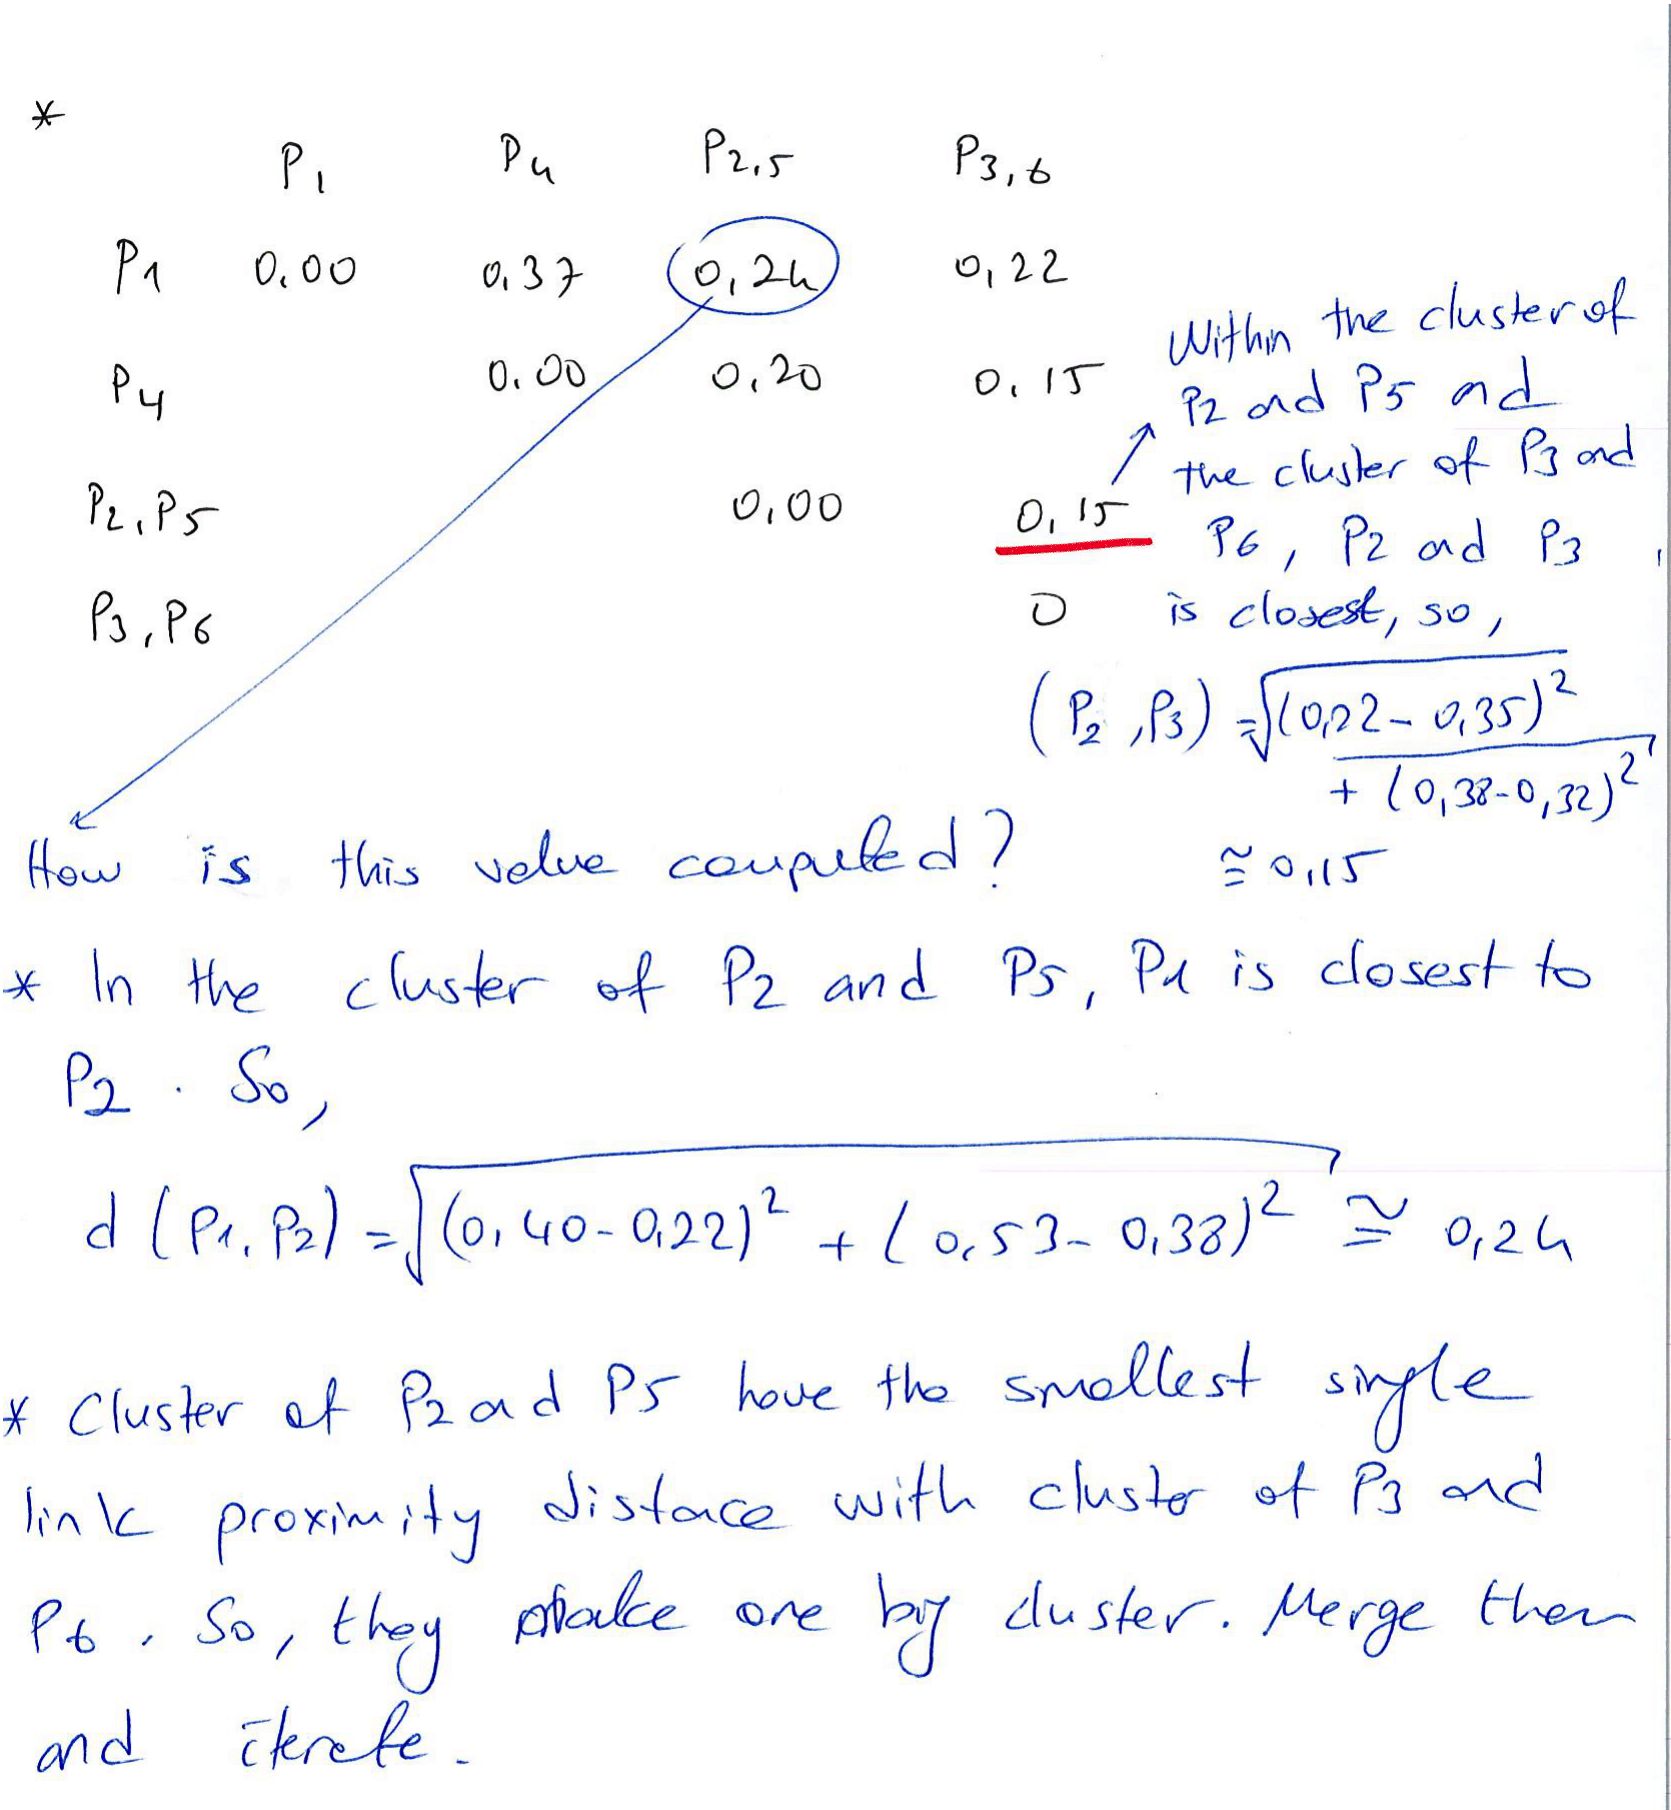 *
P1 P4 P2,5 P3,6
P1 0.00 0,37 0,24 0,22
P4 0.00 0,20 0.15
P2,P5 0,00 0,15
P3,P6 0
Within the cluster of
P2 and P5 and
the cluster of P3 and
P6, P2 and P3
is closest, so,
(P2,P3) = √(0,22-0,35)²
+ (0,38-0,32)²
≅ 0,15
How is this value computed?
* In the cluster of P2 and P5, P1 is closest to
P2. So,
d(P1,P2) = √(0,40-0,22)² + (0,53-0,38)² ≅ 0,24
* Cluster of P2 and P5 have the smallest single
link proximity distance with cluster of P3 and
P6. So, they make one big cluster. Merge them
and iterate.